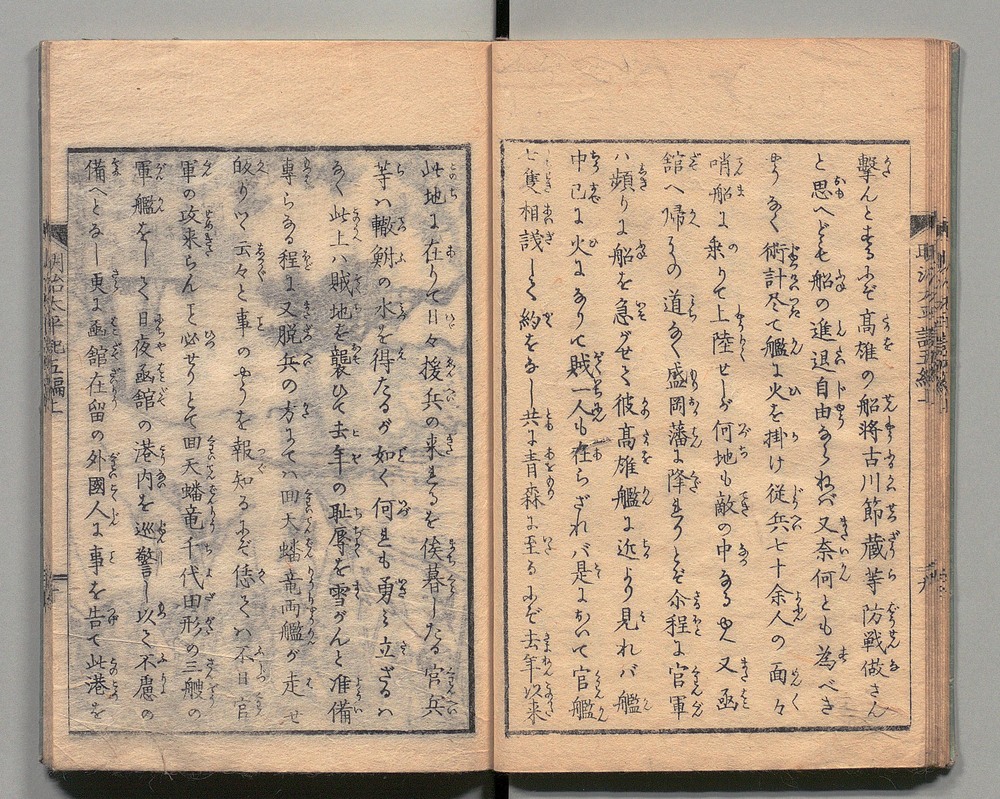 擊んとするにぞ高雄の船将古川節蔵等防戦做さん
と思へども船の進退自由ならねバ又奈何とも為べき
やうなく術計尽て艦に火を掛け従兵七十余人の面々
哨船に乗りて上陸せしが何地も敵の中なるゆゑ又函
館へ帰るの道なく盛岡藩に降れりとぞ尒程に官軍
ハ頻りに船を急がせて彼高雄艦に近より見れバ艦
中已に火にありて賊一人も在らざれバ是において官艦
七隻相議して約をなし共に青森に至るにぞ去年以来
此地に在りて日々援兵の来るを俟暮したる官兵
等ハ轍鮒の水を得たるが如く何れも勇み立ざるハ
なく此上ハ賊地を襲ひて去年の耻辱を雪がんと准備
専らなる程に又脱兵の方にてハ回天蟠竜両艦が走せ
皈りつ云々と事のやうを報知るにぞ恁てハ不日官
軍の攻来らんこと必せりとて回天蟠竜千代田形の三艘の
軍艦をして日夜函館の港内を巡警し以て不慮の
備へとなし更に函館在留の外國人に事を告て此港を
明治太平記五編上